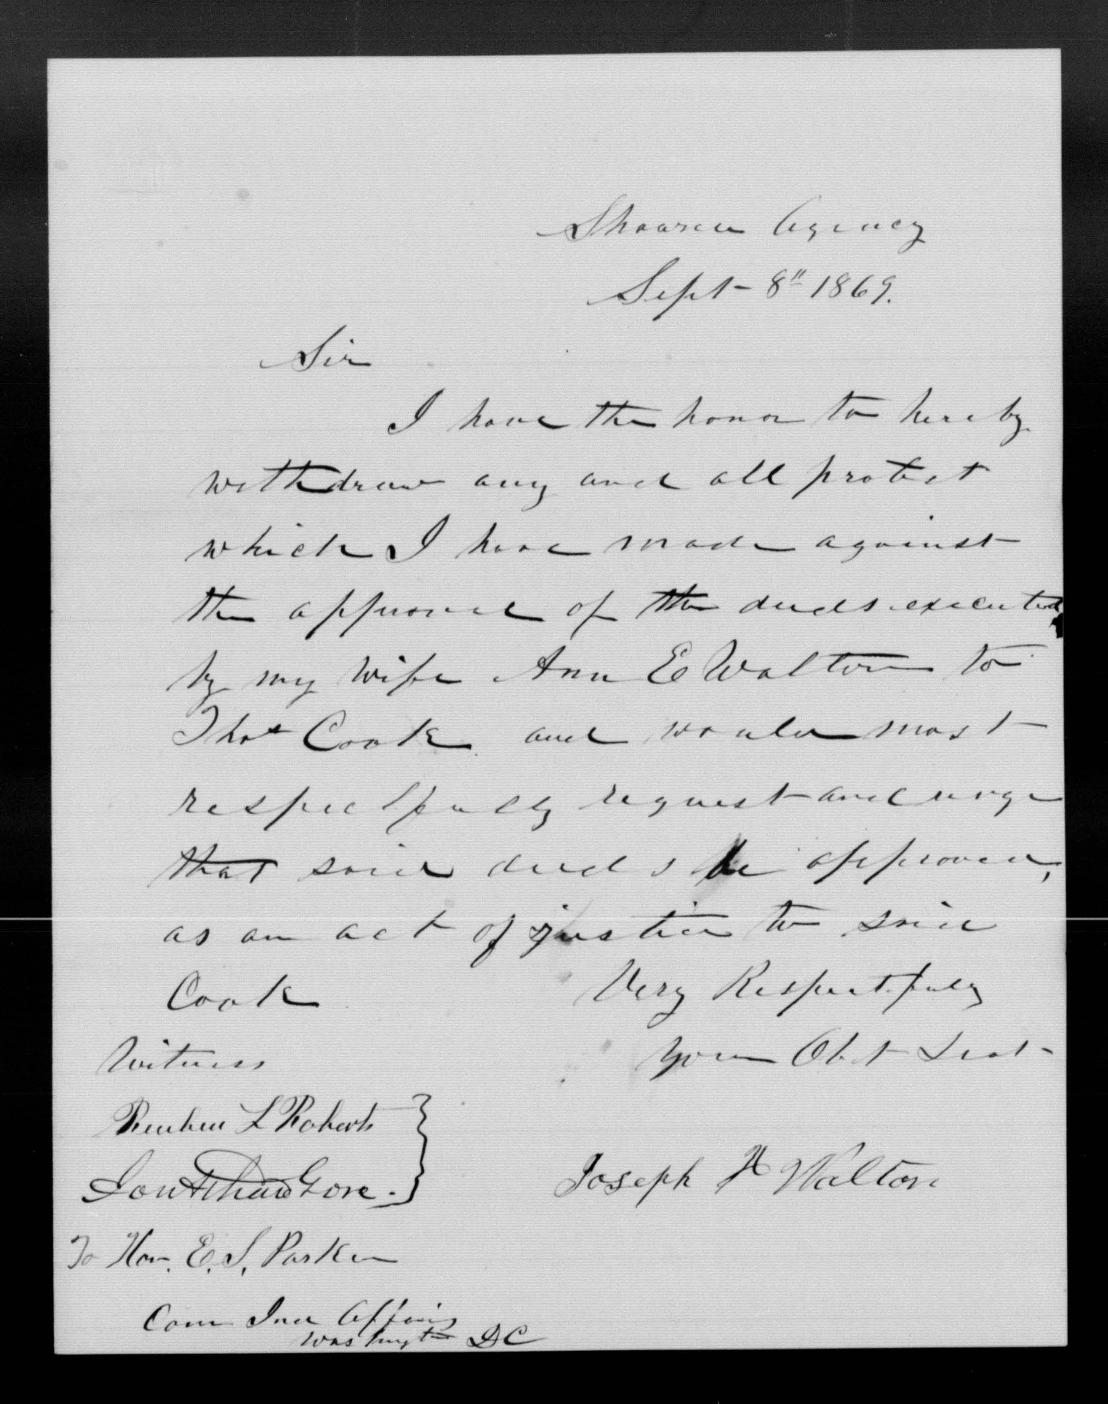 Shawnee Agency
Sept 8" 1869.
Sir
I have the honor to hereby
withdraw any and all protest
which I have made against
the approval of the deeds executed
by my wife Ann E Walton to
Thos Cook and would most
respectfully request and urge
that said deeds be approved,
as an act of justice to said
Cook
Very Respectfully
Your Obt Servt
Witness
Reuben L Roberts
Jonathan Gore.
Joseph H Walton
To Hon. E. S. Parker
Com Ind Affairs
Washington DC